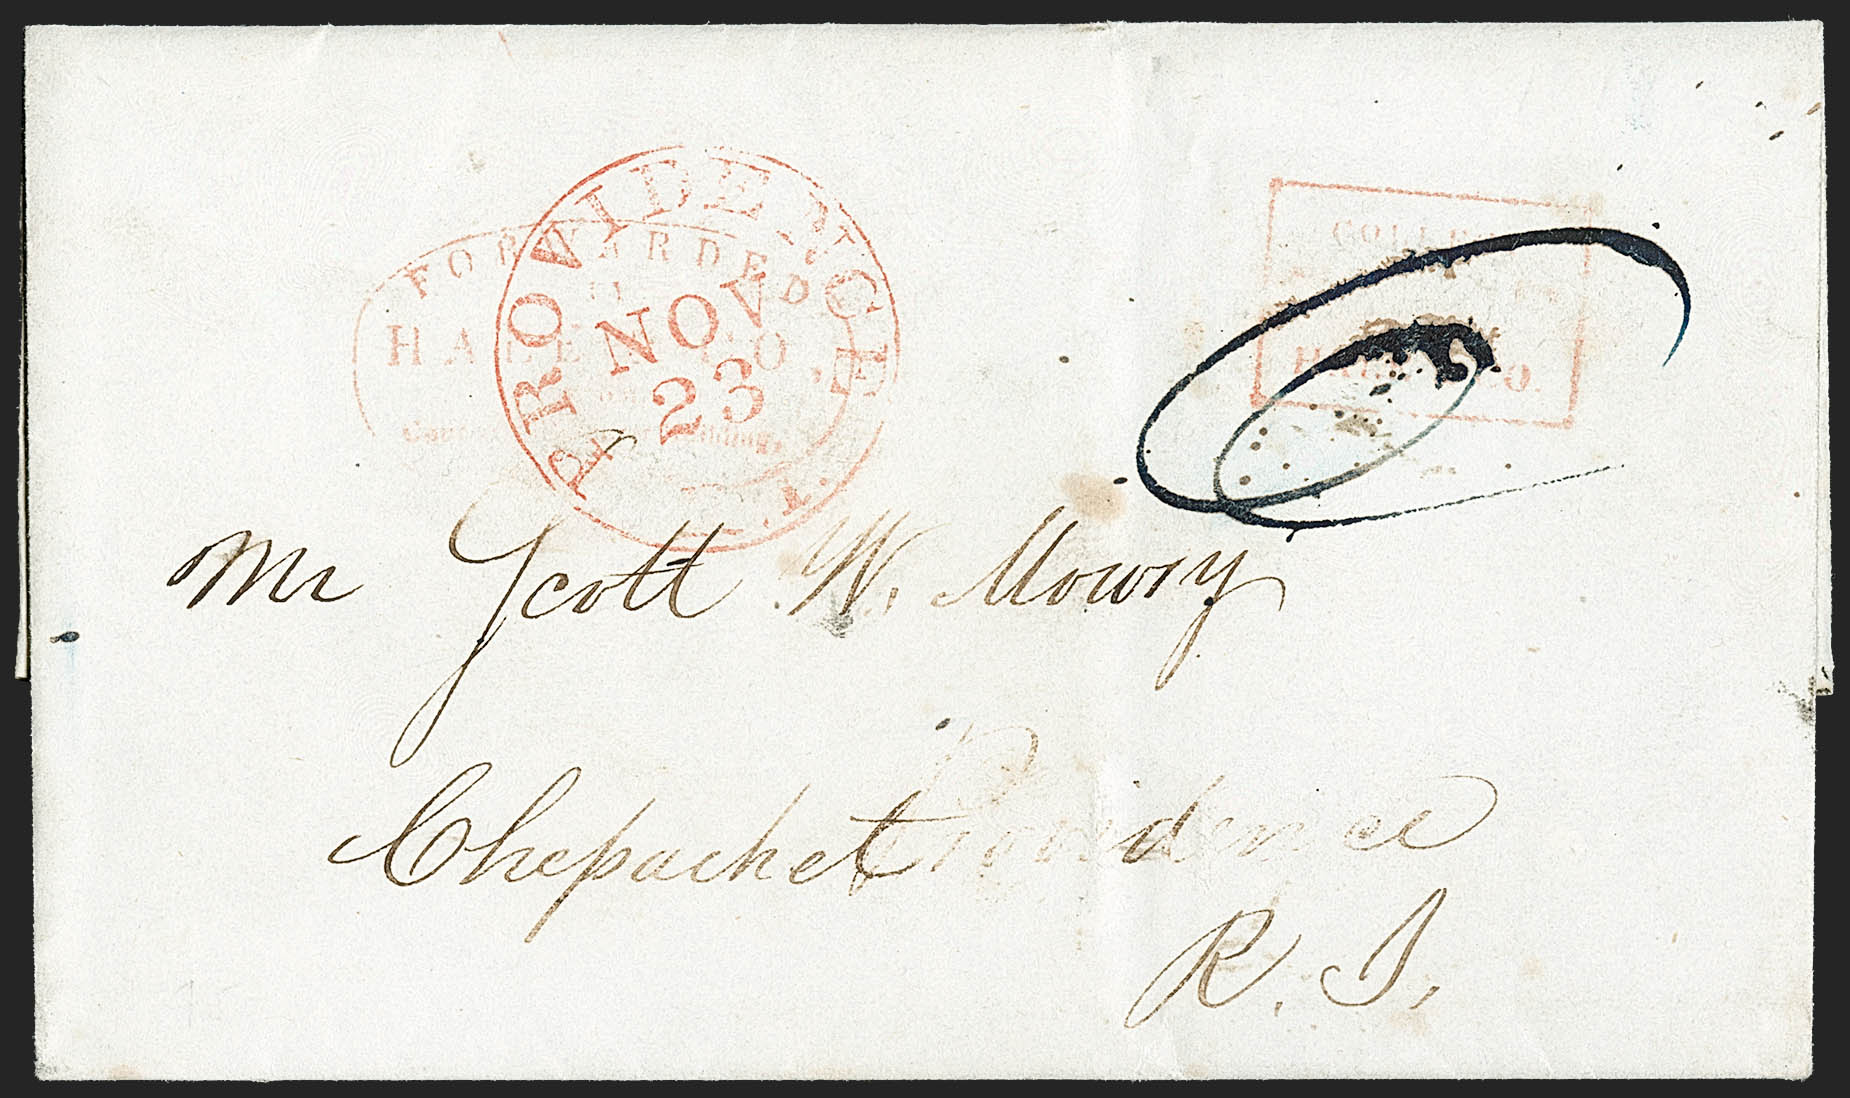 PROVIDENCE
R.I.
NOV
23
FORWARDED
HALE & CO.
COLLE
HALE & CO.
Mr Scott W. Mowry
Chepachet Providence
R. I.